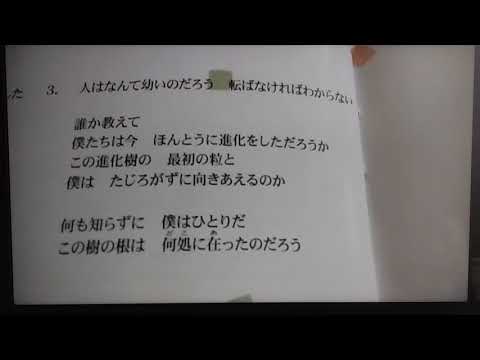 した
3. 人はなんて幼いのだろう 転ばなければわからない
誰か教えて
僕たちは今 ほんとうに進化をしただろうか
この進化樹の 最初の粒と
僕は たじろがずに向きあえるのか
何も知らずに 僕はひとりだ
この樹の根は 何処に在ったのだろう